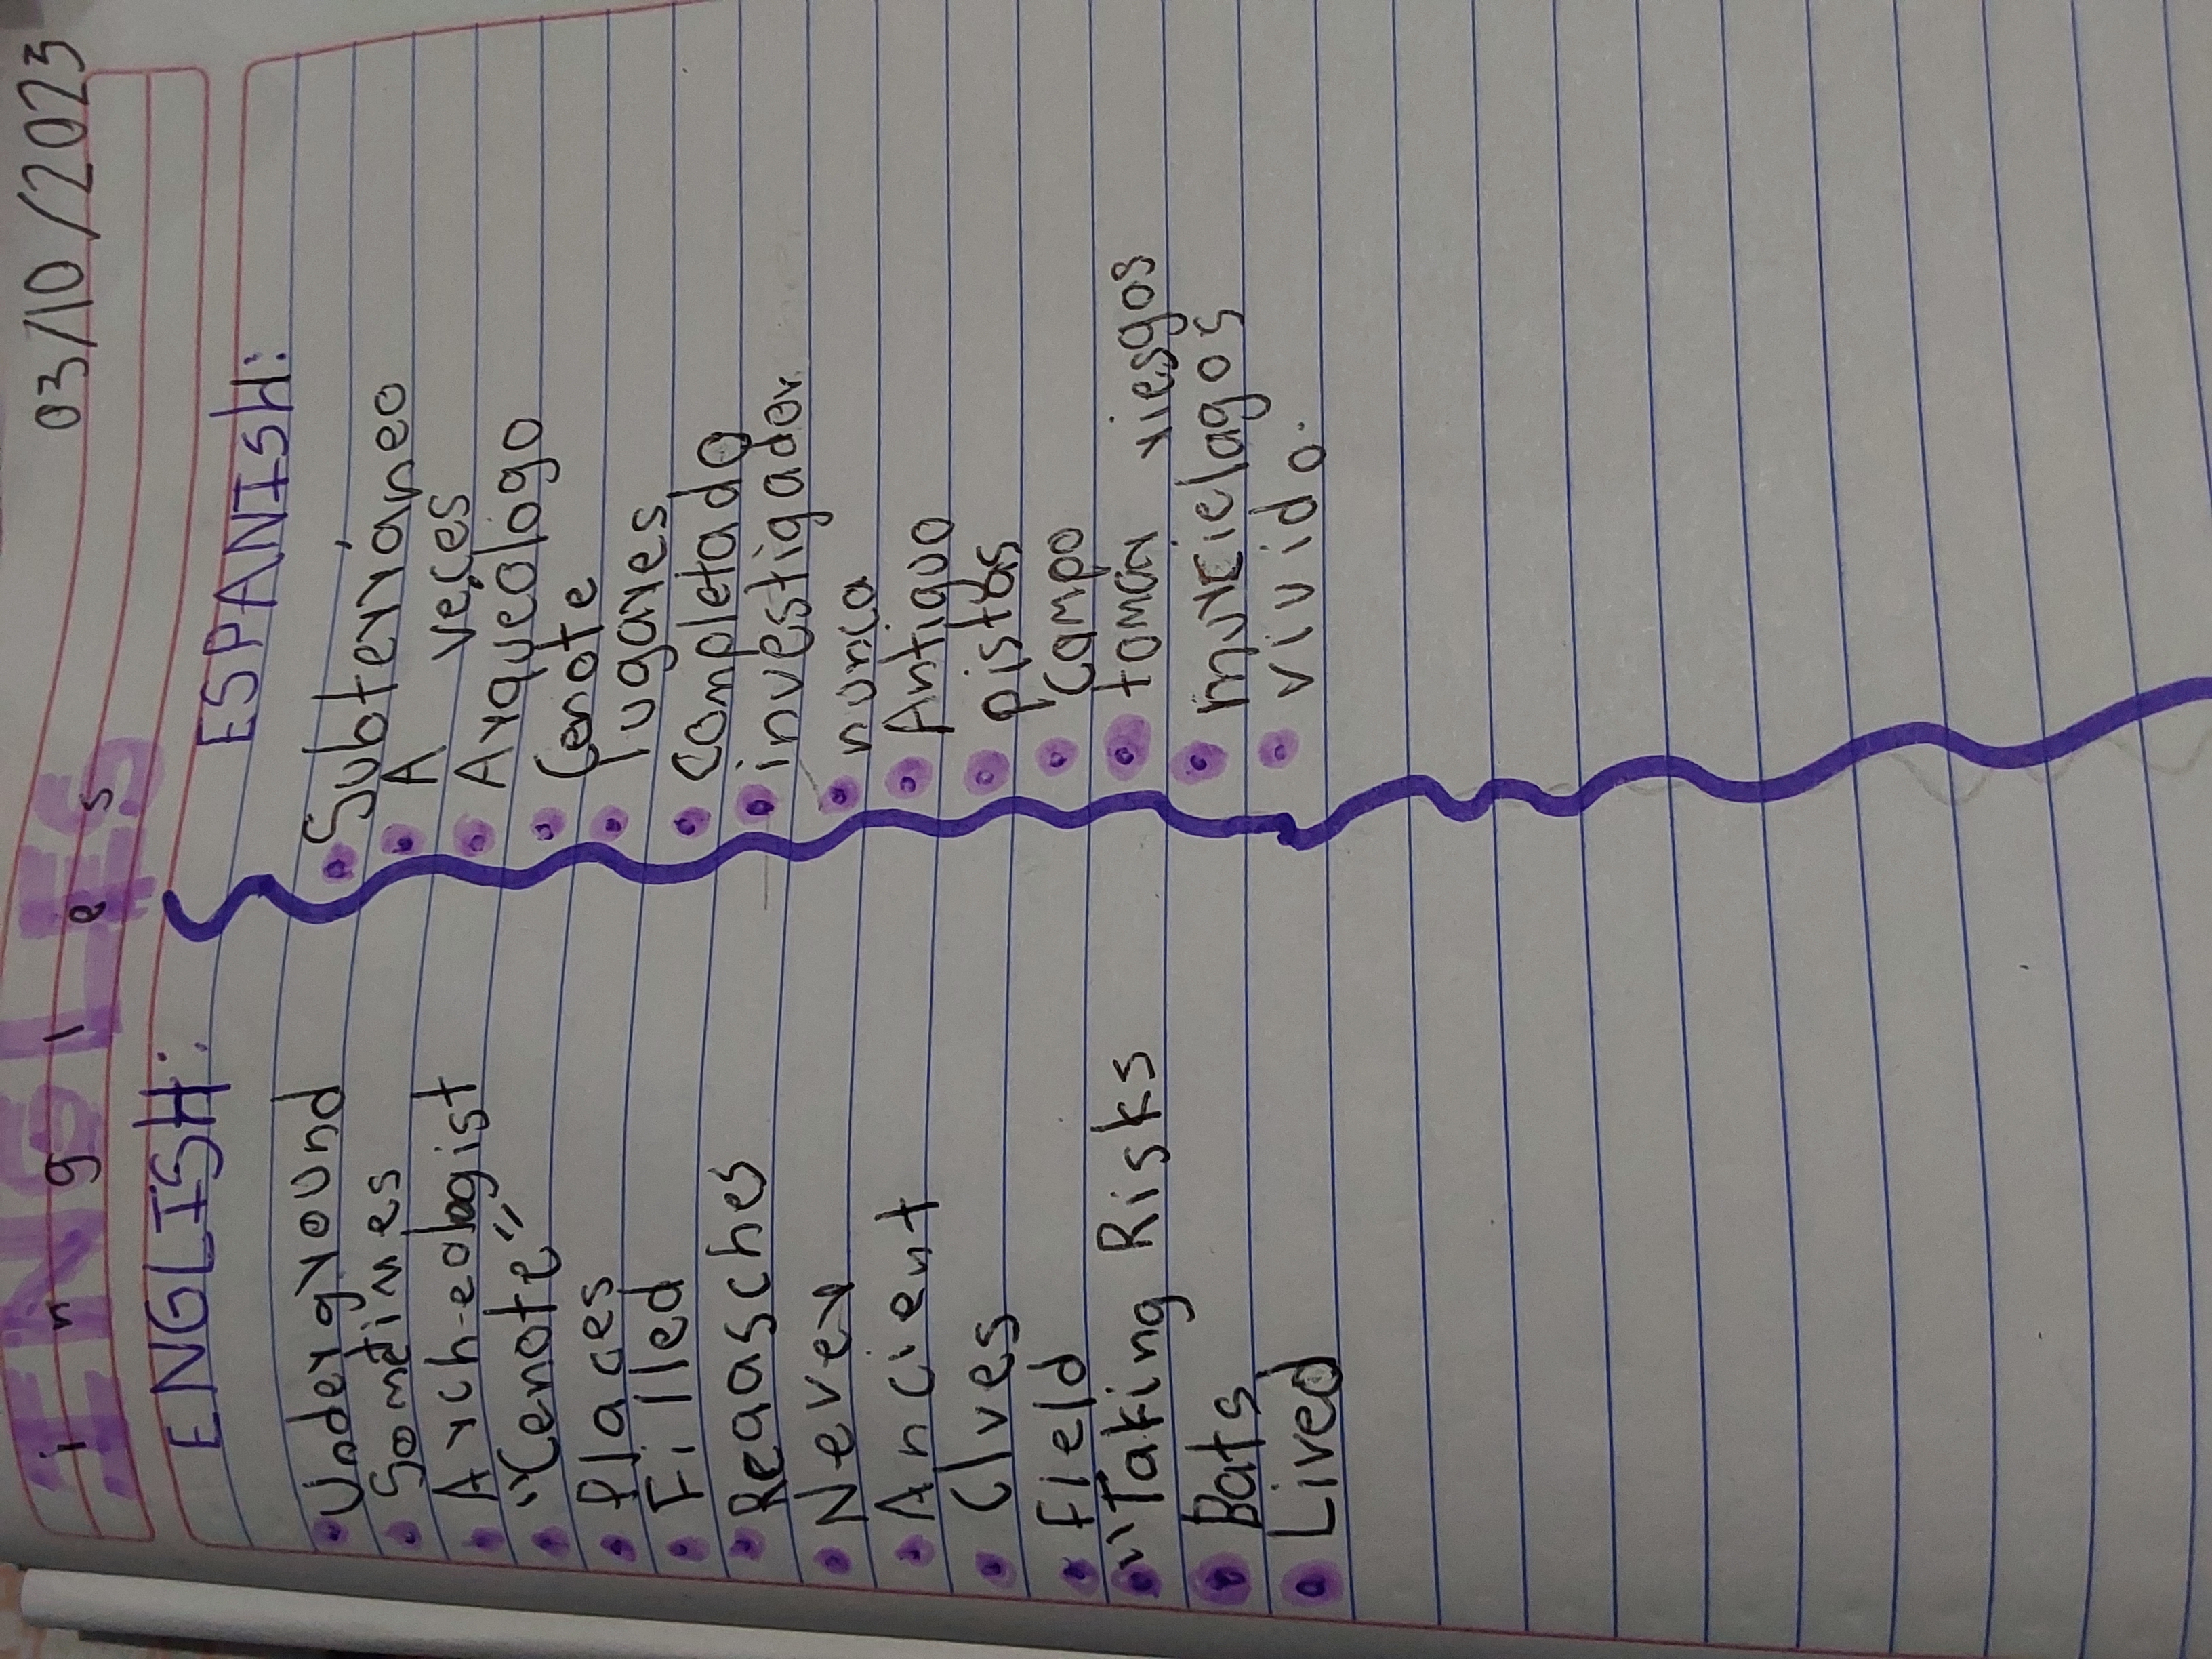 03/10/2023
ingles
ENGLISH: ESPANISH:
Underground Subterráneo
Sometimes A veces
Arch-eologist Arqueologo
"Cenote" Cenote
Places lugares
Filled Completado
Reasches investigador
Never nunca
Ancient Antiguo
Clves pistas
Field Campo
"Taking Risks tomar riesgos
Bats murcielagos
Lived vivido.